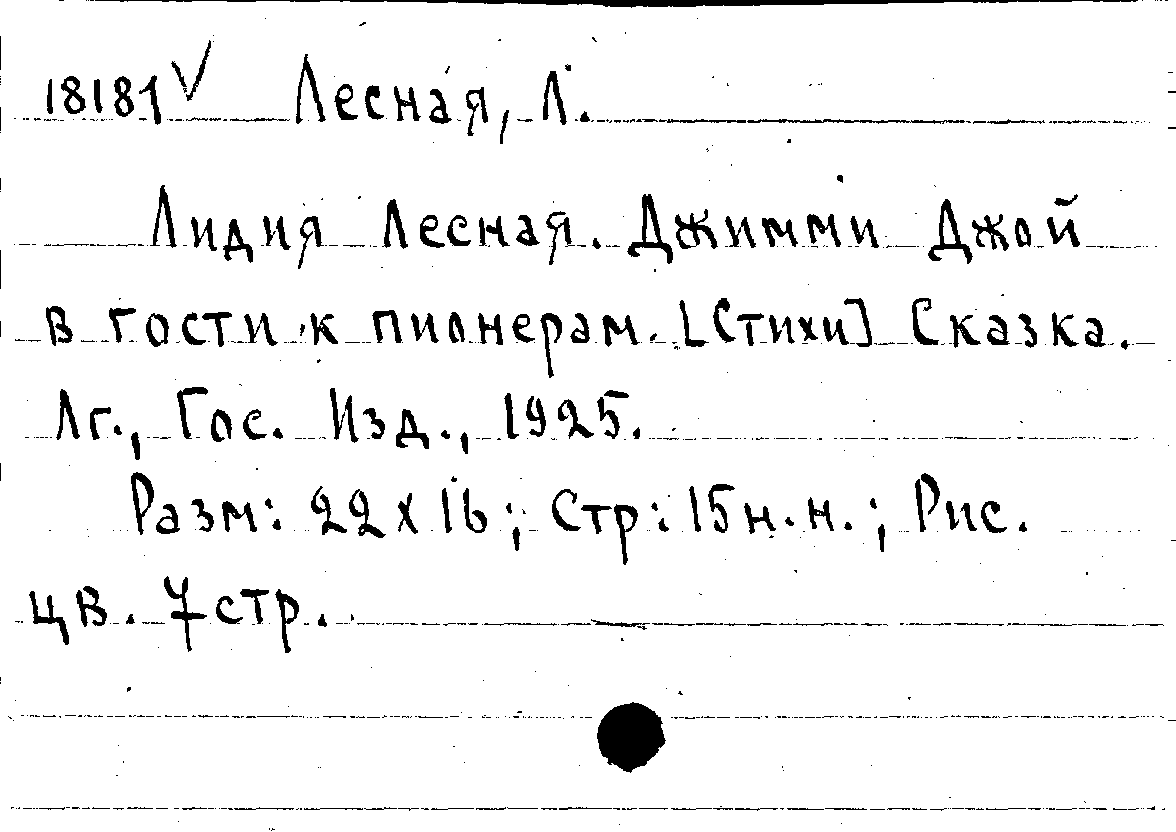 18181 √ Лесная, Л.
Лидия Лесная. Джимми Джой
в гости к пионерам. [Стихи] Сказка.
Лг., Гос. Изд., 1925.
Разм: 22 х 16; Стр: 15 н.н.; Рис.
цв. 7 стр.